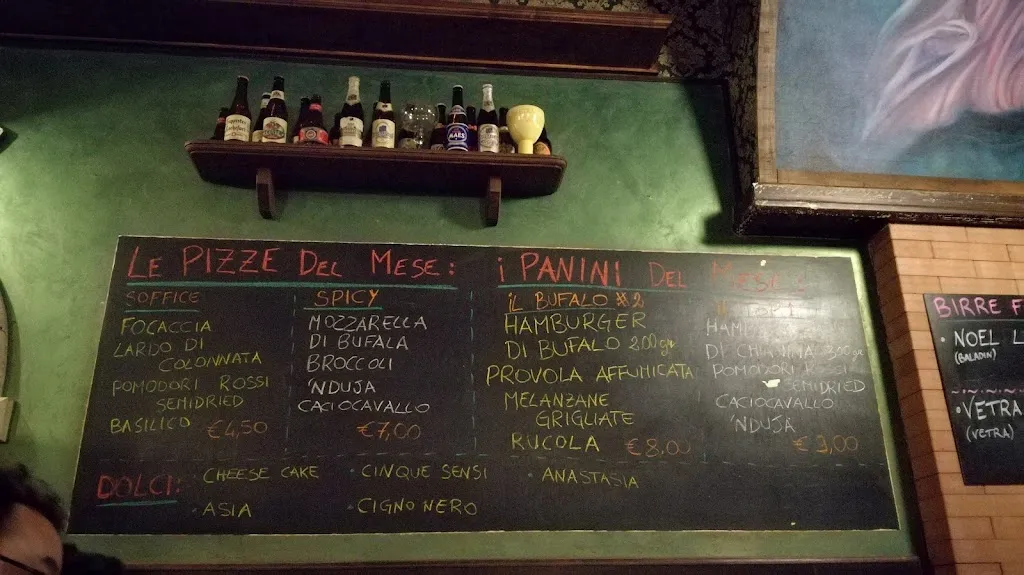 LE PIZZE DEL MESE:
SOFFICE
FOCACCIA
LARDO DI
COLONNATA
POMODORI ROSSI
SEMIDRIED
BASILICO €4,50
SPICY
MOZZARELLA
DI BUFALA
BROCCOLI
'NDUJA
CACIOCAVALLO
€7,00
i PANINI DEL MESE:
IL BUFALO #2
HAMBURGER
DI BUFALO 200gr
PROVOLA AFFUMICATA
MELANZANE
GRIGLIATE
RUCOLA €8,00
DI CHIANINA 300gr
POMODORI ROSSI
SEMIDRIED
CACIOCAVALLO
'NDUJA
€9,00
DOLCI:
· CHEESE CAKE
· CINQUE SENSI
· ANASTASIA
· ASIA
· CIGNO NERO
BIRRE
· NOEL
(BALADIN)
· VETRA
(VETRA)
MAES